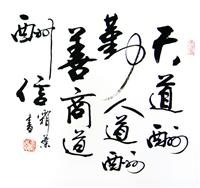 天道酬
勤人道酬
善商道
酬信